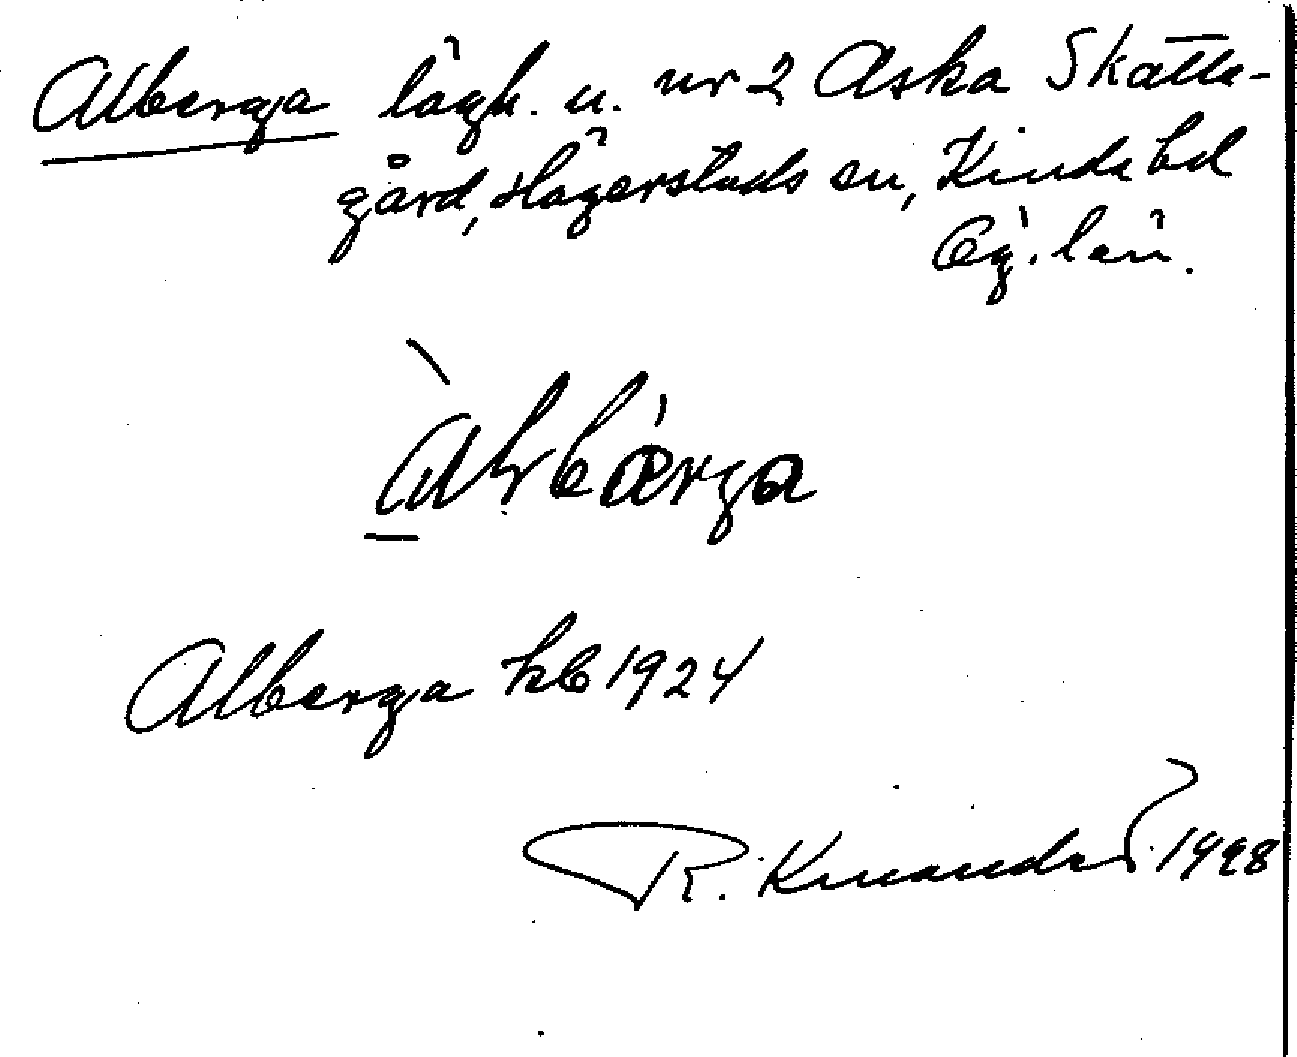 Alberga lägh. u. nr 2 Aska Skatte-
gård, Hägerstads sn, Kinda hd
Ög. län.
Alberga kb 1924
R. Kinander 1998